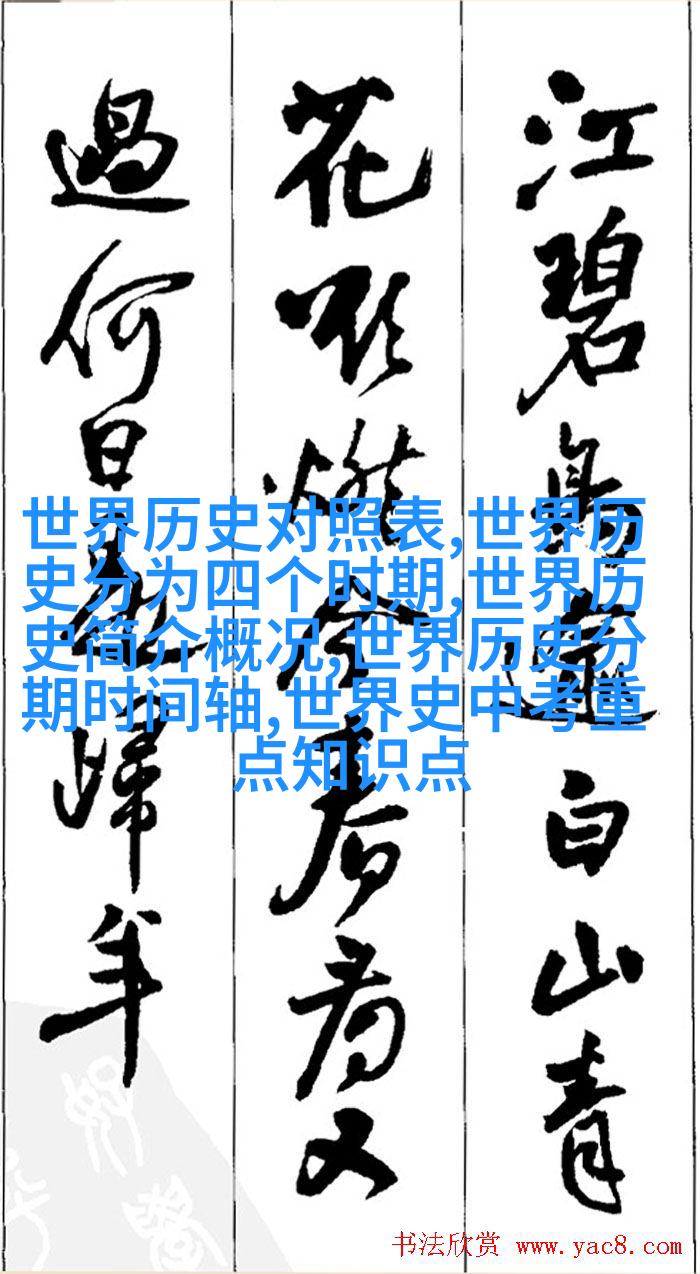 江碧鳥逾白山青
花欲燃今春看又
過何日是歸年
世界历史对照表,世界历
史分为四个时期,世界历
史简介概况,世界历史分
期时间轴,世界史中考重
点知识点
书法欣赏 www.yac8.com